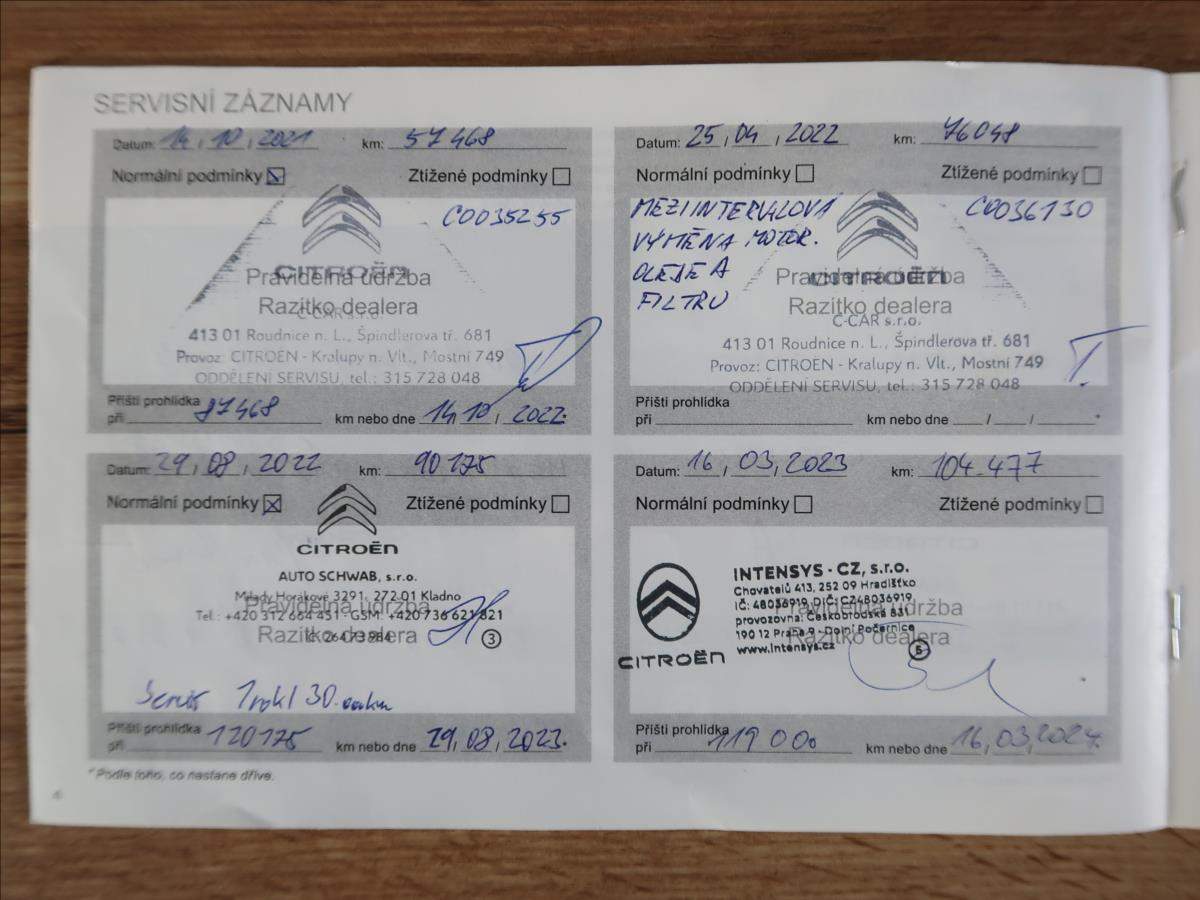 SERVISNÍ ZÁZNAMY
Datum: 14, 10, 2021 km: 57 468
Normální podmínky Ztížené podmínky
C0035255
CITROËN
Pravidelná údržba
Razítko dealera
C-CAR s.r.o.
413 01 Roudnice n. L., Špindlerova tř. 681
Provoz: CITROEN - Kralupy n. Vlt., Mostní 749
ODDĚLENÍ SERVISU, tel.: 315 728 048
Příští prohlídka
při 87468 km nebo dne 14, 10 / 2022.
Datum: 25, 04, 2022 km: 76048
Normální podmínky Ztížené podmínky
MEZIINTERVALOVÁ C0036130
VÝMĚNA MOTOR.
OLEJE A
FILTRU
CITROËN
Pravidelná údržba
Razítko dealera
C-CAR s.r.o.
413 01 Roudnice n. L., Špindlerova tř. 681
Provoz: CITROEN - Kralupy n. Vlt., Mostní 749
ODDĚLENÍ SERVISU, tel.: 315 728 048
Příští prohlídka
při km nebo dne / /
Datum: 29, 08, 2022 km: 90 175
Normální podmínky Ztížené podmínky
CITROËN
AUTO SCHWAB, s.r.o.
Milady Horákové 3291, 272 01 Kladno
Pravidelná údržba
Tel.: +420 312 664 451 · GSM: +420 736 621 821
Razítko dealera
3
Servis 1rok/30.
Příští prohlídka
při 120175 km nebo dne 29, 08, 2023.
Datum: 16, 03, 2023 km: 104.477
Normální podmínky Ztížené podmínky
INTENSYS - CZ, s.r.o.
Chovatelů 413, 252 09 Hradištko
IČ: 48036919, DIČ: CZ48036919
Pravidelná údržba
provozovna: Českobrodská 831
190 12 Praha 9 - Dolní Počernice
Razítko dealera
www.intensys.cz
CITROËN
5
Příští prohlídka
při 119 000 km nebo dne 16, 03, 2024.
* Podle toho, co nastane dříve.
4